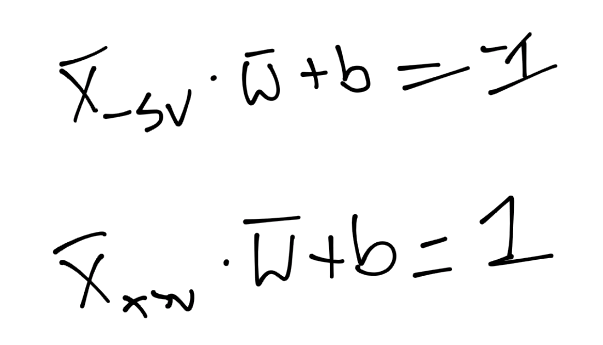 x̄₋SV · w̄ + b = -1
x̄ · w̄ + b = 1